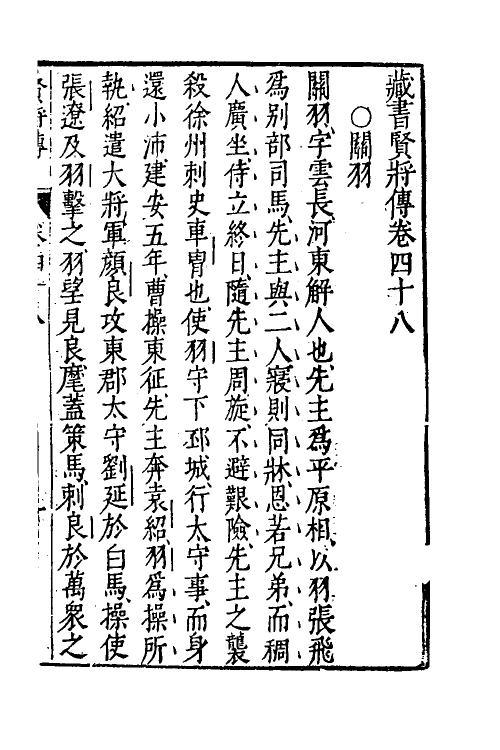 藏書賢將傳卷四十八
○關羽
關羽字雲長河東解人也先主爲平原相以羽張飛
爲别部司馬先主與二人寢則同牀恩若兄弟而稠
人廣坐侍立終日隨先主周旋不避艱險先主之襲
殺徐州刺史車冑也使羽守下邳城行太守事而身
還小沛建安五年曹操東征先主奔袁紹羽爲操所
執紹遣大將軍顔良攻東郡太守劉延於白馬操使
張遼及羽擊之羽望見良麾蓋策馬刺良於萬衆之
賢將傳
卷四十八